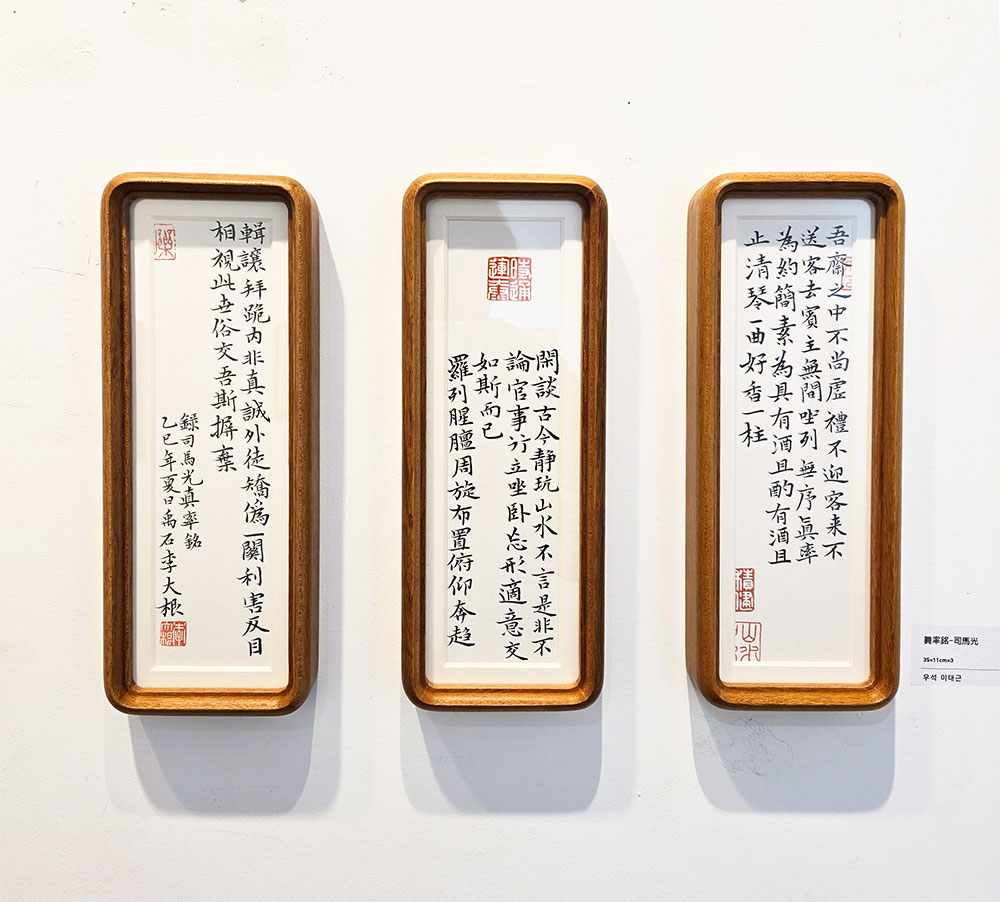 吾齋之中不尚虛禮不迎客来不
送客去賓主無間坐列無序眞率
為約簡素為具有酒且酌有酒且
止清琴一曲好香一柱
山水
閑談古今静玩山水不言是非不
論官事行立坐卧忘形適意交
如斯而已
羅列腥膻周旋布置俯仰奔趋
輯讓拜跪内非真誠外徒矯偽一關利害反目
相視此世俗交吾斯摒棄
録司馬光真率銘
乙巳年夏日禹石李大根
眞率銘-司馬光
35×11cm×3
우석 이대근